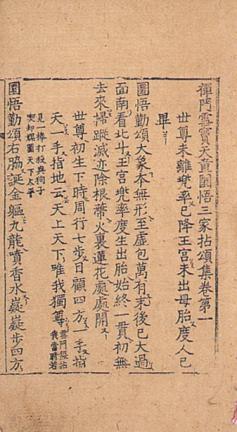 禪門雪竇天童圜悟三家拈頌集卷第一
世尊未離兜率已降王宮未出母胎度人已
畢
圜悟勤頌大象本無形至虛包萬有末後已太過
面南看北斗王宮兜率度生出胎始終一貫初無
去來掃蹤滅迹除根蔕火裏蓮花處處開
世尊初生下時周行七步目顧四方一手指
天一手指地云天上天下唯我獨尊
雲門拈
我當時若
見一棒打殺與狗子
喫却圖天下太平
圜悟勤頌右脇誕金軀九龍噴香水嶷嶷步四方